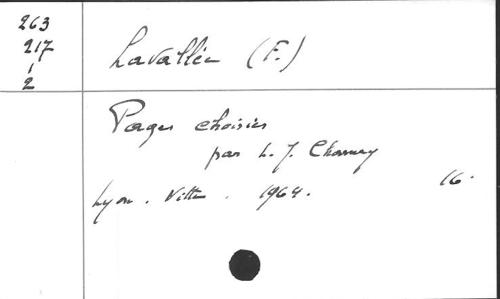 263
217
1
2
Lavallée (F.)
Pages choisies
par L. J.
Lyon. Vitte. 1964. 16.